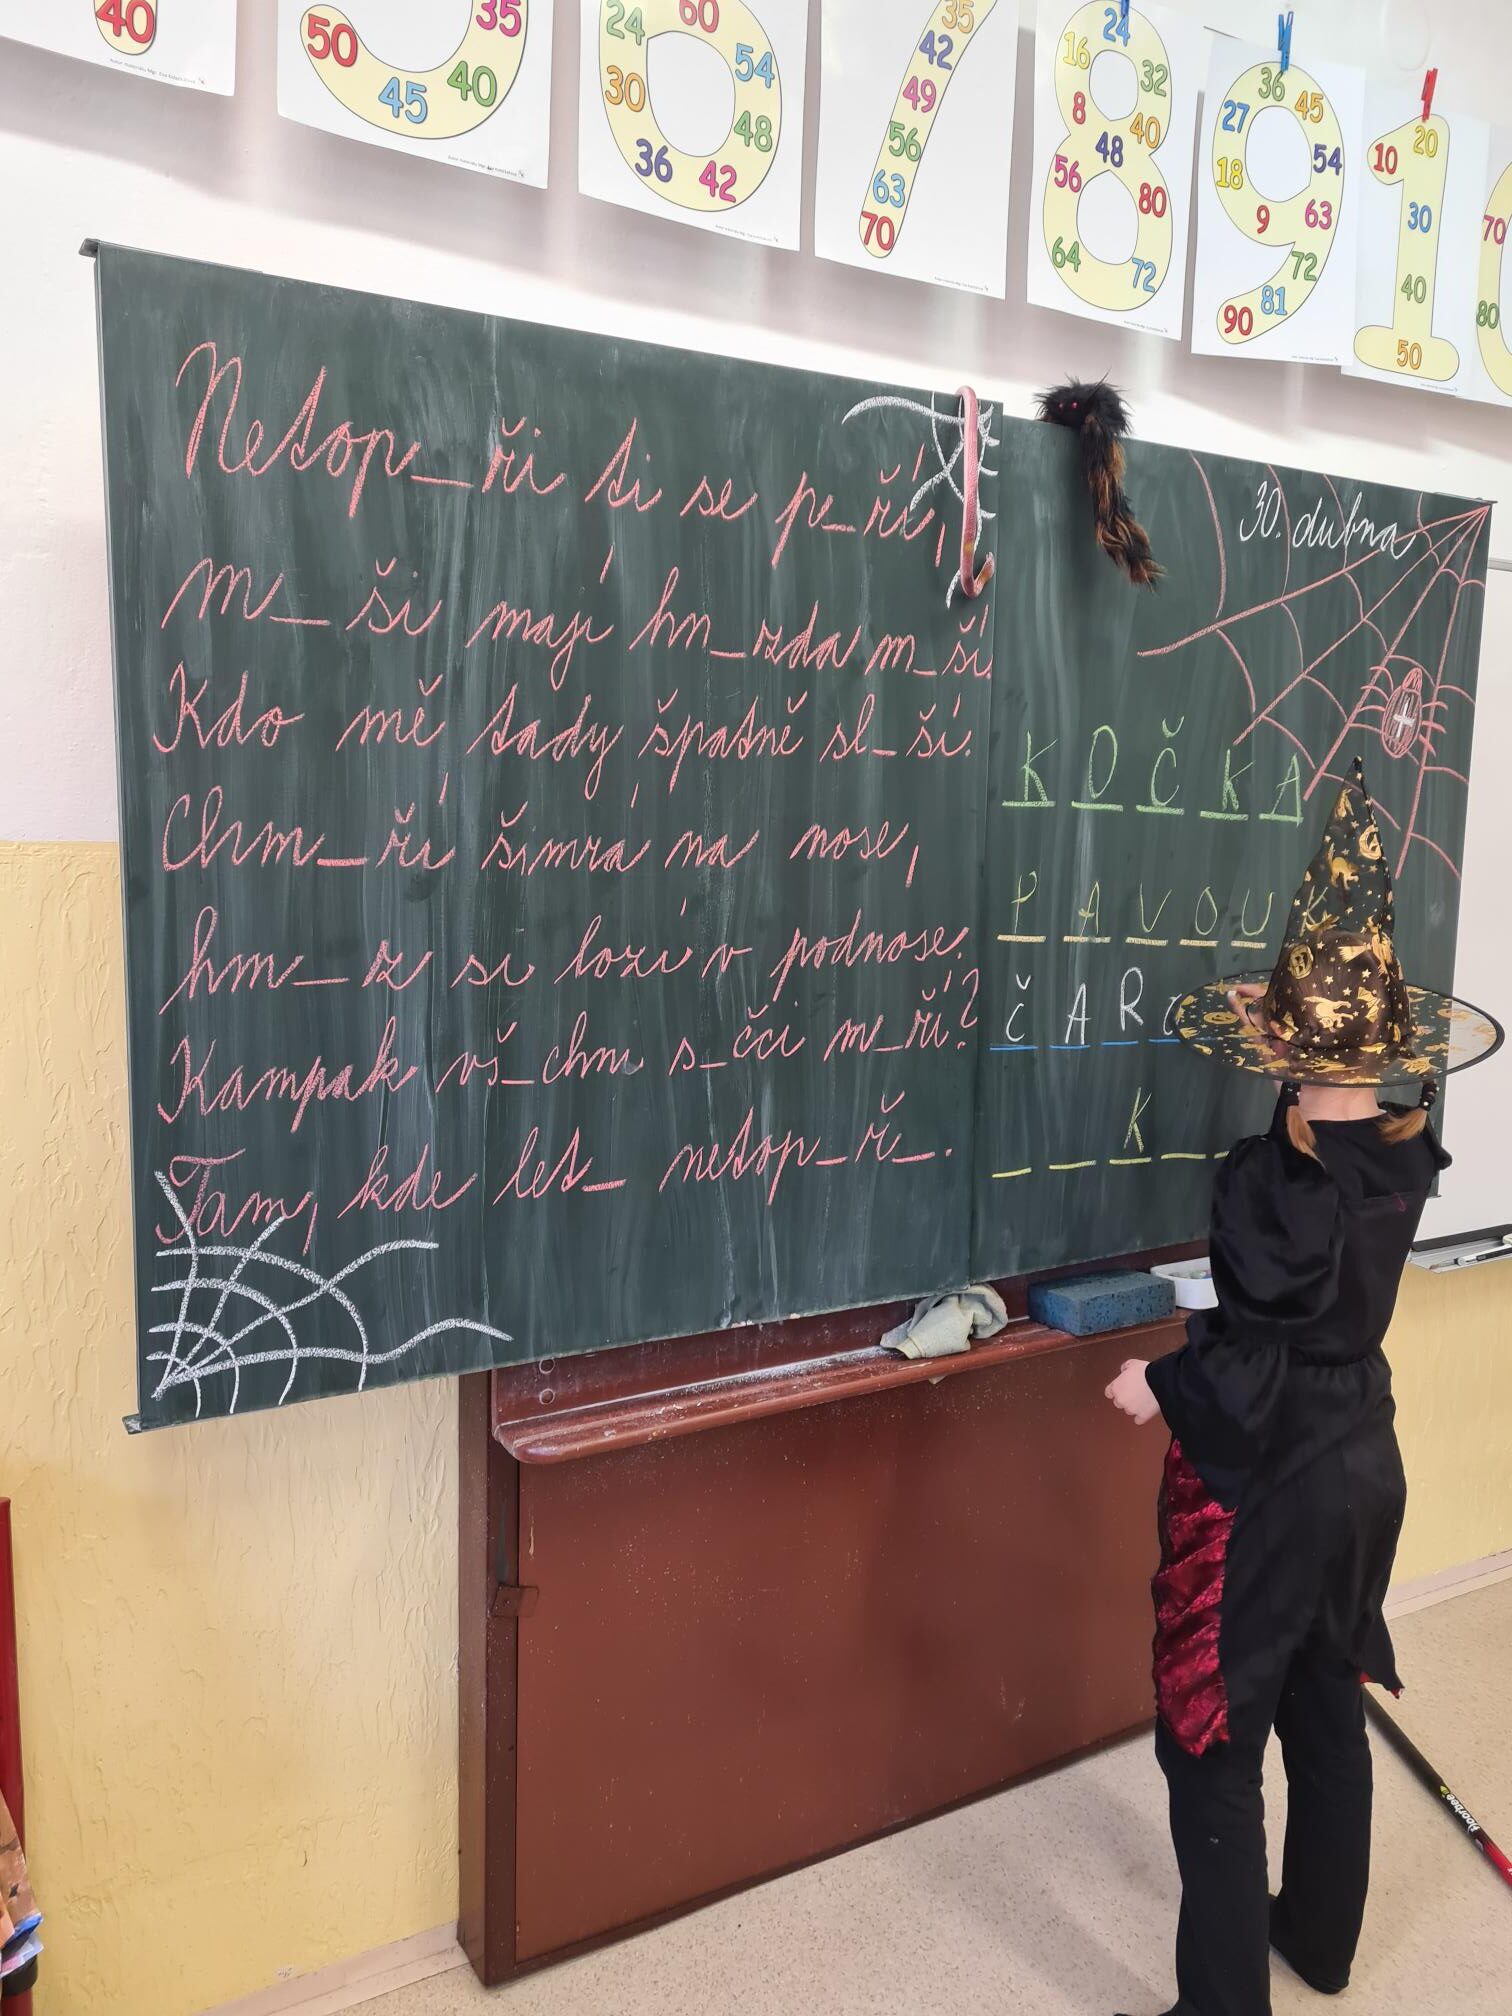 40
50 45 40 35
24 60 54 30 48 36 42
35 42 49 56 63 70
24 16 32 8 40 48 56 80 64 72
36 27 45 18 54 9 63 72 81 90
10 20 30 40 50
70 80
Netop_ři ti se pe_ří,
m_ši mají hn_zda m_ší.
Kdo mě tady špatně sl_ší.
Chm_ří šimrá na nose,
hm_z si lozí v podnose.
Kampak vš_chni s_čci m_ří?
Tam, kde let_ netop_ř_.
30. dubna
KOČKA
PAVOUK
ČARO
_ _ K _ _
Floorbee